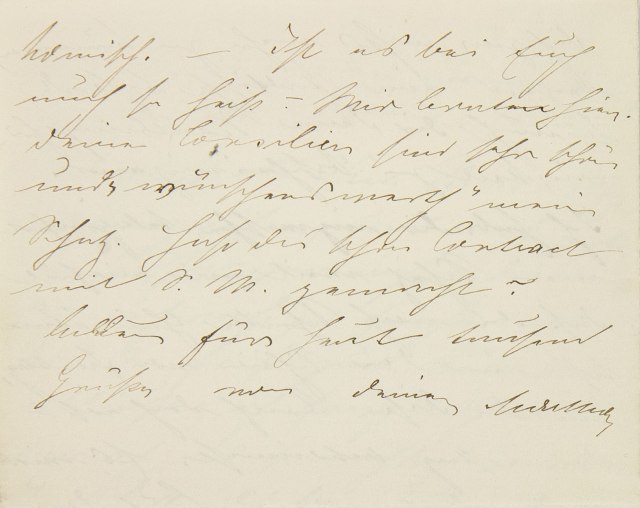 komisch. — Ist es bei Euch
auch so heiß – Wir braten hier.
deine sind sehr schön
und "wünschenswerth" mein
Schatz. Hast du schon Contract
mit S. M. gemacht?
für heut tausend
Grüße von deiner